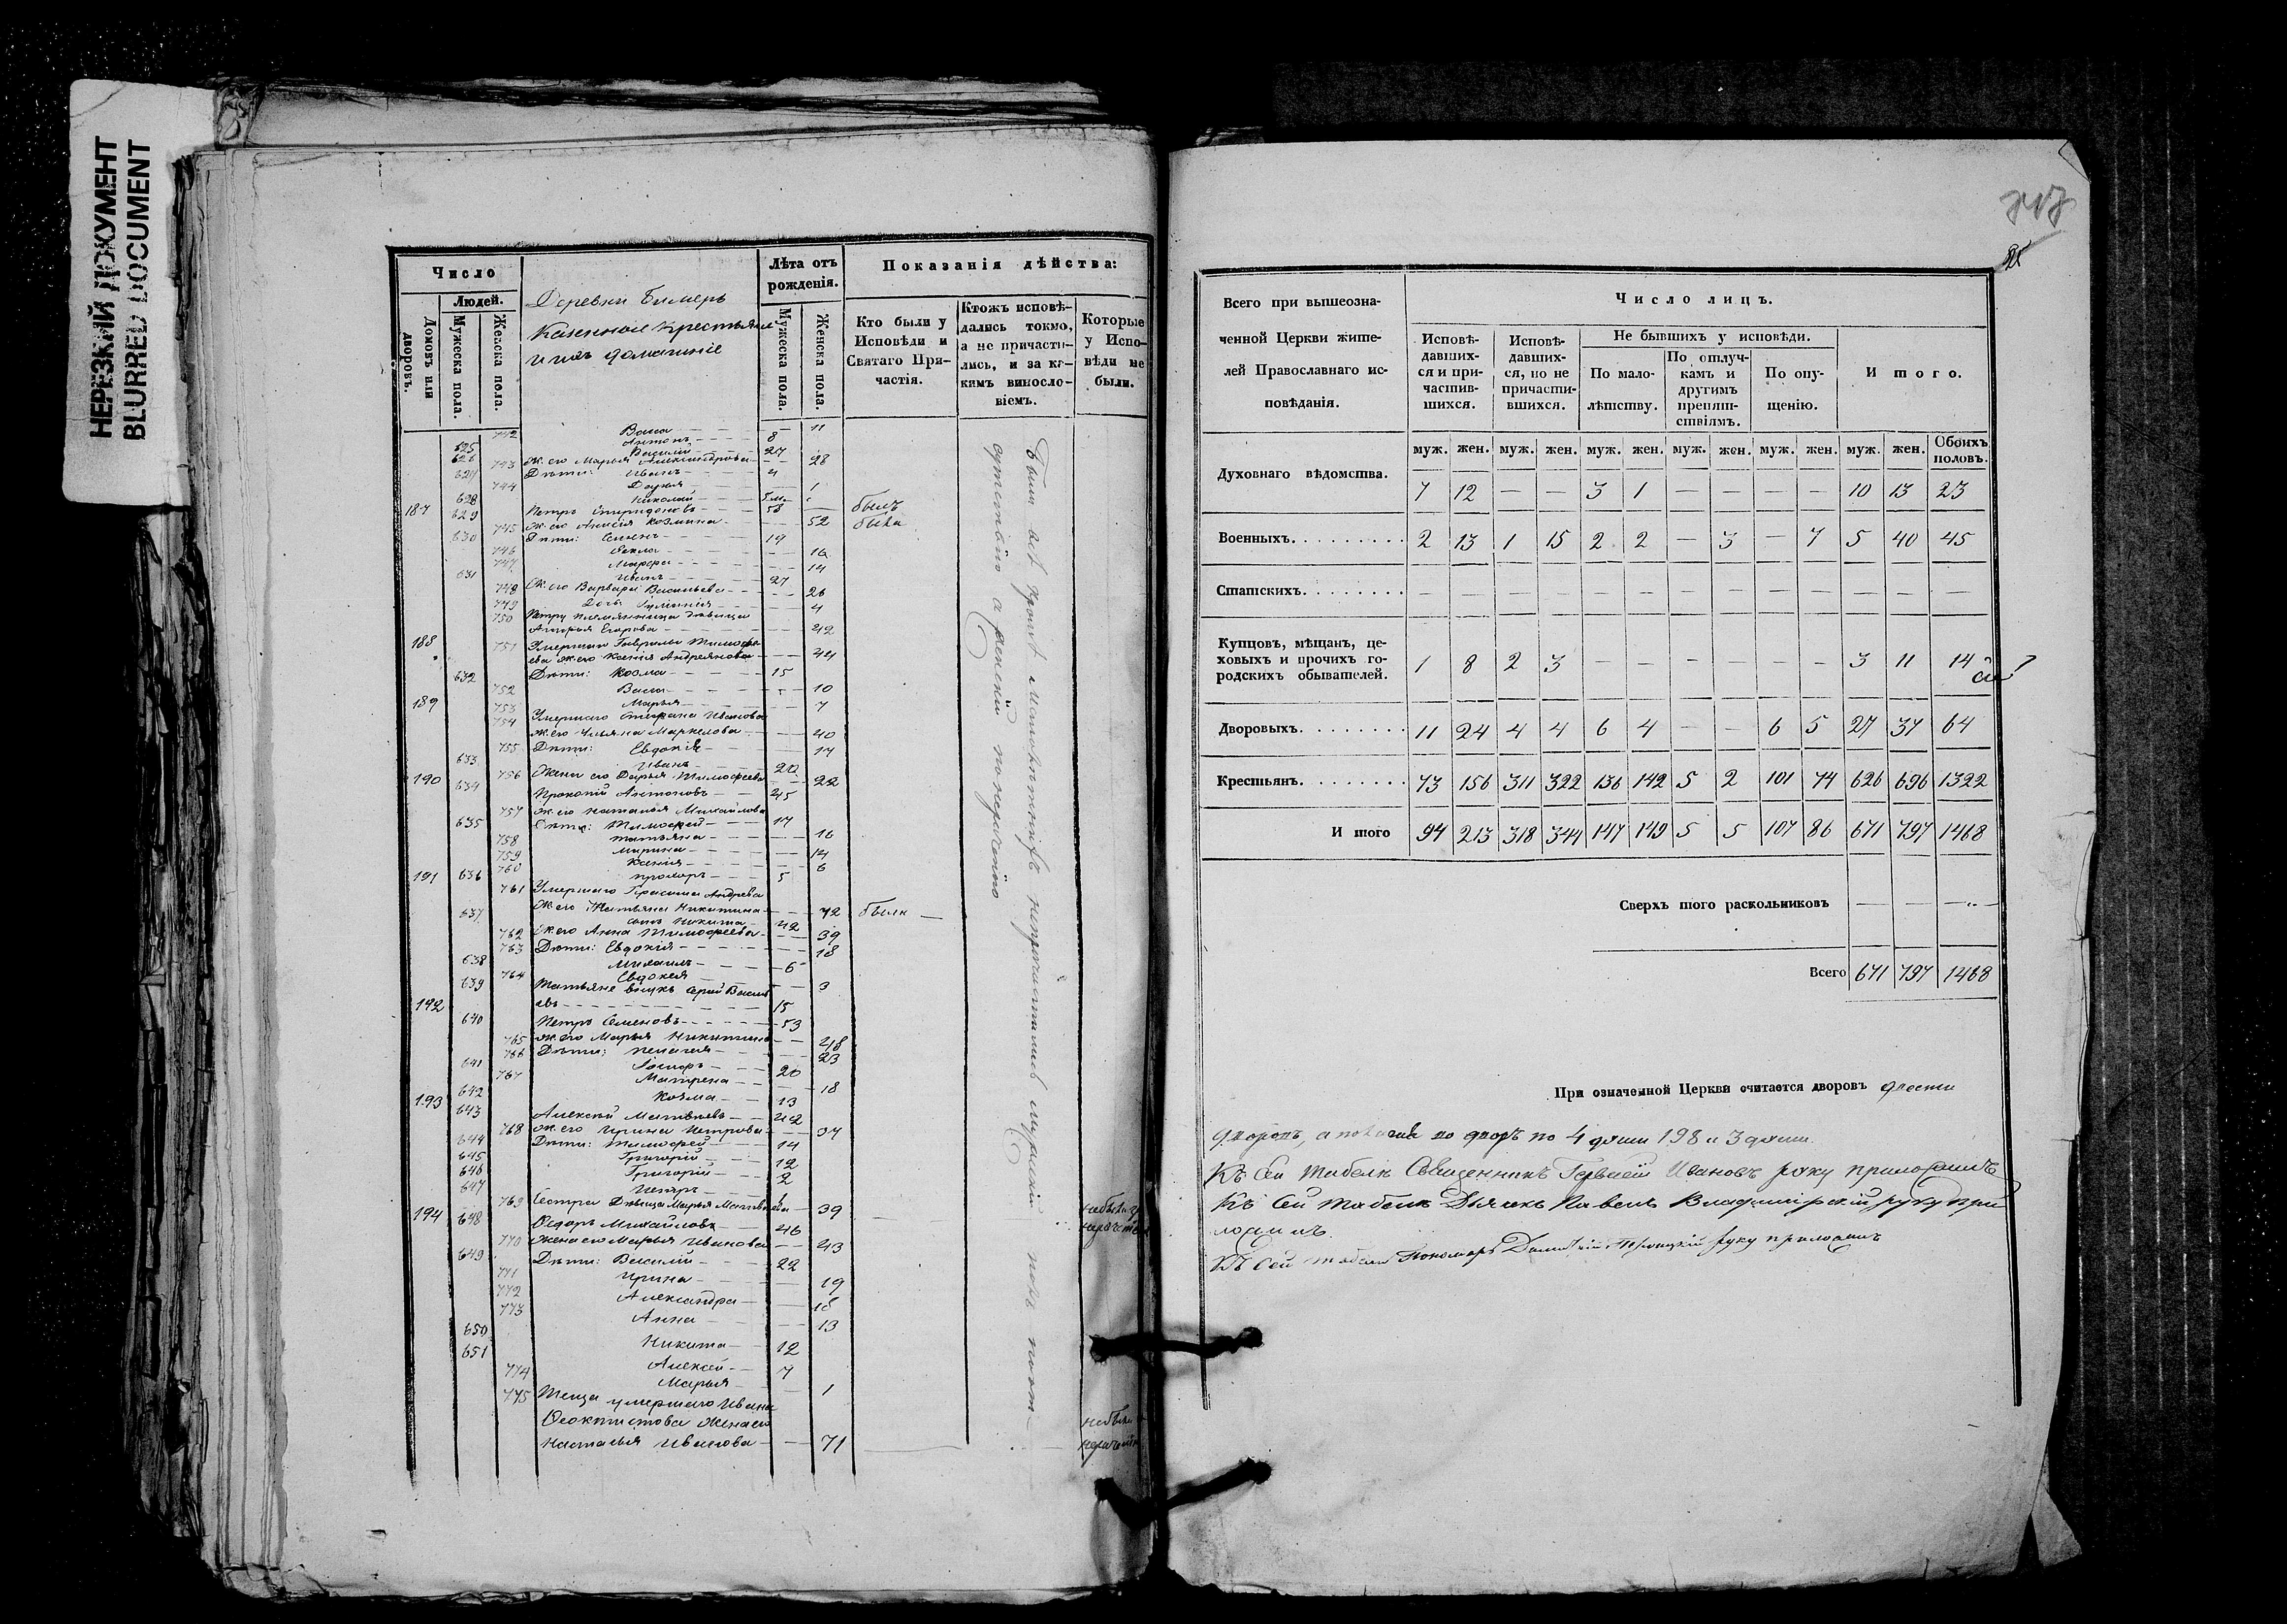 НЕРЕЗКИЙ ДОКУМЕНТ
BLURRED DOCUMENT
Число
Людей.
Домовъ или дворовъ.
Мужеска пола.
Женска пола.
Деревни Бимеръ
Казенные крестьяне
и ихъ домашніе
Лѣта отъ рожденія.
Мужеска пола.
Женска пола.
Показанія дѣйства:
Кто были у Исповѣди и Святаго Причастія.
Ктожъ исповѣдались токмо, а не причастились, и за какимъ винословіемъ.
Которые у Исповѣди не были.
742 Васса 11
625 Антонъ 8
626 Василій 27
743 Ж. его Марья Александрова 28
627 Дѣти: Иванъ 4
744 Дарья 1
628 Николай
187 629 Петръ Спиридоновъ 58 былъ
745 Ж. его Анисія Козмина 52 была
630 Дѣти: Семенъ 19
746 Фекла 16
747 Марфа 14
631 Иванъ 27
748 Ж. его Варвара Васильева 26
749 Дочь 4
750 Петру племянница дѣвица
Егорова 42
188 751 Умершаго Гаврилы Тимофе
ева ж. его Ксенія Андреянова 44
632 Дѣти: Козма 15
752 Васса 10
753 Марья 7
189 754 Умершаго Стефана Иванова
ж. его Ульяна Маркелова 40
755 Дѣти: Евдокія 14
633 Иванъ 20
756 Жена его Дарья Тимофеева 22
190 634 Прокопій Антоновъ 45
757 Ж. его Наталья Михайлова
635 Дѣти: Тимофей 17
758 Татьяна 16
759 Марина 14
760 Ксенія 6
636 Прохоръ 5
191 761 Умершаго Герасима Андреева
Ж. его Татьяна Никитина 72 были
637 сынъ Никита 42
762 Ж. его Анна Тимофеева 39
763 Дѣти: Евдокія 18
638 Михаилъ 6
764 Евдокія 3
639 Татьяне внукъ Сергѣй Василь
евъ 15
192 640 Петръ Семеновъ 53
765 Ж. его Марья Никитина 48
766 Дѣти: Пелагея 23
641 20
767 Матрена 18
642 Козма 13
193 643 Алексѣй Матвѣевъ 42
768 Ж. его Ирина Петрова 37
644 Дѣти: Тимофей 14
645 Григорій 12
646 Григорій 2
647 Петръ 1
769 Сестра дѣвица Марья Матвѣева 39
194 648 Федоръ Михайловъ 46
770 Жена его Марья Иванова 43
649 Дѣти: Василій 22
771 Ирина 19
772 Александра 18
773 Анна 13
650 Никита 12
651 Алексѣй 7
774 Марья 1
775 Теща умершаго Ивана
Феоктистова жена его
Наталья Иванова 71
Были всѣ кромѣ непричастились мужескій полъ по от
сутствію а женскій по нерачѣнію
Всего при вышеозначенной Церкви жителей Православнаго исповѣданія.
Число лицъ.
Исповѣдавшихся и причастившихся.
Исповѣдавшихся, но не причастившихся.
Не бывшихъ у исповѣди.
По малолѣтству.
По отлучкамъ и другимъ препятствіямъ.
По опущенію.
Итого.
муж. жен. муж. жен. муж. жен. муж. жен. муж. жен. муж. жен. Обоихъ половъ.
Духовнаго вѣдомства. 7 12 — — 3 1 — — — — 10 13 23
Военныхъ. 2 13 1 15 2 2 — 3 — 7 5 40 45
Статскихъ. — — — — — — — — — — — — —
Купцовъ, мѣщанъ, цеховыхъ и прочихъ городскихъ обывателей. 1 8 2 3 — — — — — — 3 11 14
Дворовыхъ. 11 24 4 4 6 4 — — 6 5 27 37 64
Крестьянъ. 73 156 311 322 136 142 5 2 101 74 626 696 1322
И того 94 213 318 344 147 149 5 5 107 86 671 797 1468
Сверхъ того раскольниковъ — — —
Всего 671 797 1468
При означенной Церкви считается дворовъ
дворовъ, а полагая во дворъ по 4 души 198 и 3 души.
Къ сей табели Священникъ Ивановъ руку приложилъ
Къ сей табели Дьячекъ Павелъ Владимірскій руку при
ложилъ.
Къ сей табели Пономарь Троицкій руку приложилъ